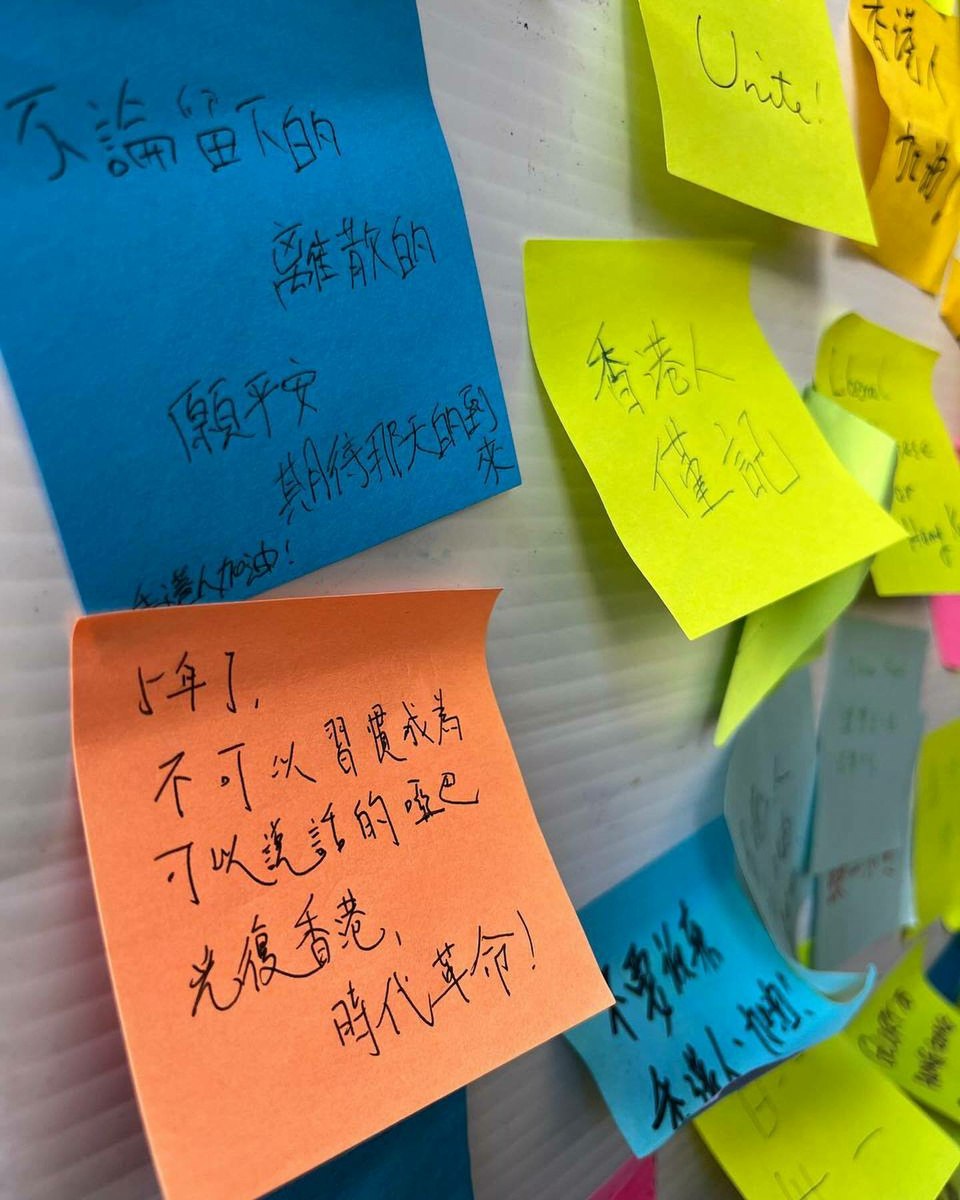 不論留下的
離散的
願平安
期待那天的到
來
香港人加油!
Unite!
香港人
加油!
香港人
僅記
Liberal
or
Hong
5年了,
不可以習慣成為
可以說話的啞巴
光復香港,
時代革命!
不要放棄
香港人加油!